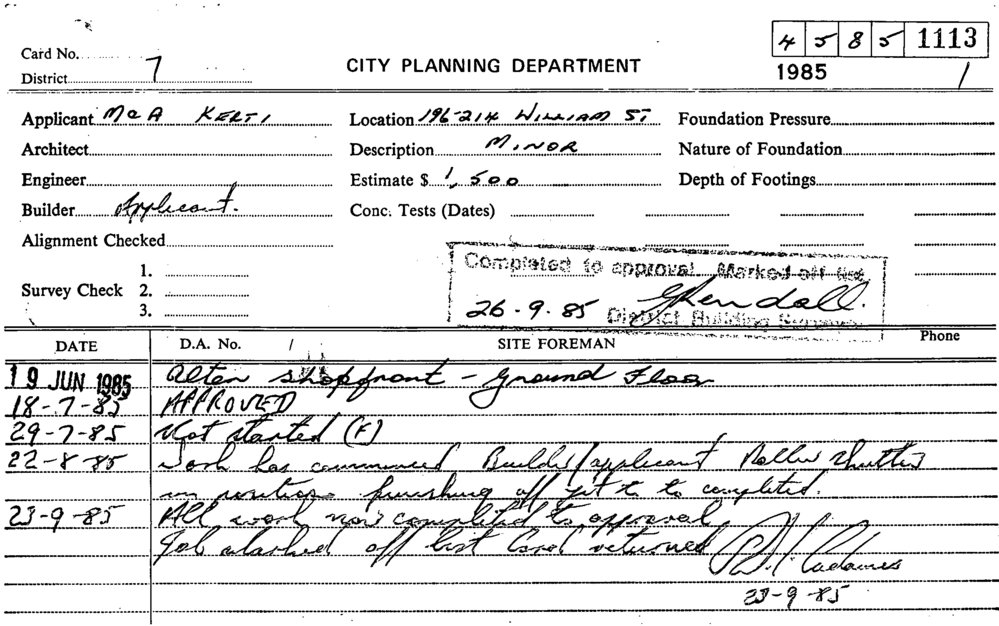 4 5 8 5 1113
Card No.
District 7
CITY PLANNING DEPARTMENT
1985 /
Applicant M & A KERTI
Location 196-214 WILLIAM ST.
Foundation Pressure
Architect
Description MINOR
Nature of Foundation
Engineer
Estimate $ 1,500
Depth of Footings
Builder Applicant.
Conc. Tests (Dates)
Alignment Checked
Survey Check 1.
2.
3.
Completed to approval Marked off list
26.9.85
District Building Surveyor
DATE D.A. No. / SITE FOREMAN Phone
19 JUN 1985 Alter shopfront - Ground Floor
18-7-85 APPROVED
29-7-85 Not started (F)
22-8-85 Work has commenced Builder/applicant Roller shutters
in position finishing off yet to to completed.
23-9-85 All work now completed to approval
Job marked off list Card returned
23-9-85